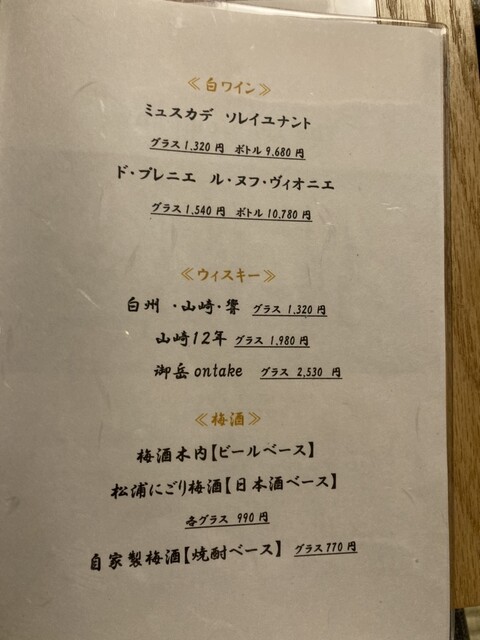 ≪白ワイン≫
ミュスカデ ソレイユナント
グラス1,320円 ボトル9,680円
ド・ブレニエ ル・ヌフ・ヴィオニエ
グラス1,540円 ボトル10,780円
≪ウィスキー≫
白州・山崎・響 グラス1,320円
山崎12年 グラス1,980円
御岳ontake グラス2,530円
≪梅酒≫
梅酒木内【ビールベース】
松浦にごり梅酒【日本酒ベース】
各グラス 990円
自家製梅酒【焼酎ベース】 グラス770円